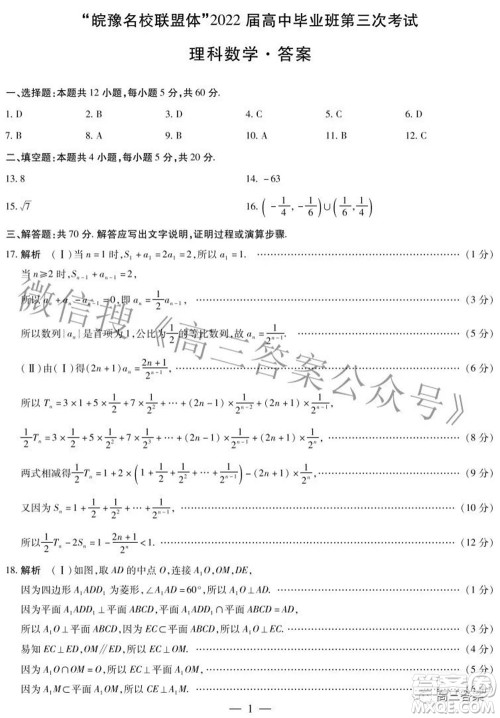 “皖豫名校联盟体”2022届高中毕业班第三次考试
理科数学·答案
一、选择题:本题共12小题,每小题5分,共60分.
1. D 2. D 3. B 4. C 5. A 6. C
7. B 8. A 9. B 10. A 11. B 12. D
二、填空题:本题共4小题,每小题5分,共20分.
13. 8 14. -63
15. √7 16. (-1/4, -1/6)∪(1/6, 1/4)
三、解答题:共70分.解答应写出文字说明,证明过程或演算步骤.
17. 解析 (Ⅰ)当n=1时,S₁+a₁=2a₁=2,所以a₁=1. (1分)
当n≥2时,Sₙ₋₁+aₙ₋₁=2,
所以aₙ+aₙ-aₙ₋₁=0,即aₙ=1/2 aₙ₋₁. (3分)
所以数列{aₙ}是首项为1,公比为1/2的等比数列,所以aₙ=1/2ⁿ⁻¹. (5分)
(Ⅱ)由(Ⅰ)得(2n+1)aₙ=(2n+1)/2ⁿ⁻¹. (6分)
所以Tₙ=3×1+5×1/2+7×1/2²+…+(2n-1)×1/2ⁿ⁻²+(2n+1)×1/2ⁿ⁻¹, (7分)
1/2 Tₙ=3×1/2+5×1/2²+7×1/2³+…+(2n-1)×1/2ⁿ⁻¹+(2n+1)×1/2ⁿ, (8分)
两式相减得1/2 Tₙ=1+2×(1+1/2+1/2²+…+1/2ⁿ⁻¹)-(2n+1)×1/2ⁿ. (9分)
又因为Sₙ=1+1/2+1/2²+…+1/2ⁿ⁻¹, (10分)
所以1/2 Tₙ-2Sₙ=1-(2n+1)/2ⁿ<1. (12分)
18. 解析 (Ⅰ)如图,取AD的中点O,连接A₁O,OM,DE,
因为四边形A₁ADD₁为菱形,∠A₁AD=60°,所以A₁O⊥AD. (1分)
因为平面A₁ADD₁⊥平面ABCD,平面A₁ADD₁∩平面ABCD=AD,
所以A₁O⊥平面ABCD,因为EC⊂平面ABCD,所以A₁O⊥EC. (3分)
易知EC⊥ED,OM∥ED,所以EC⊥OM. (4分)
因为A₁O∩OM=O,所以EC⊥平面A₁OM,
因为A₁M⊂平面A₁OM,所以A₁M⊥EC.
— 1 —
微信搜《高三答案公众号》
高三答案